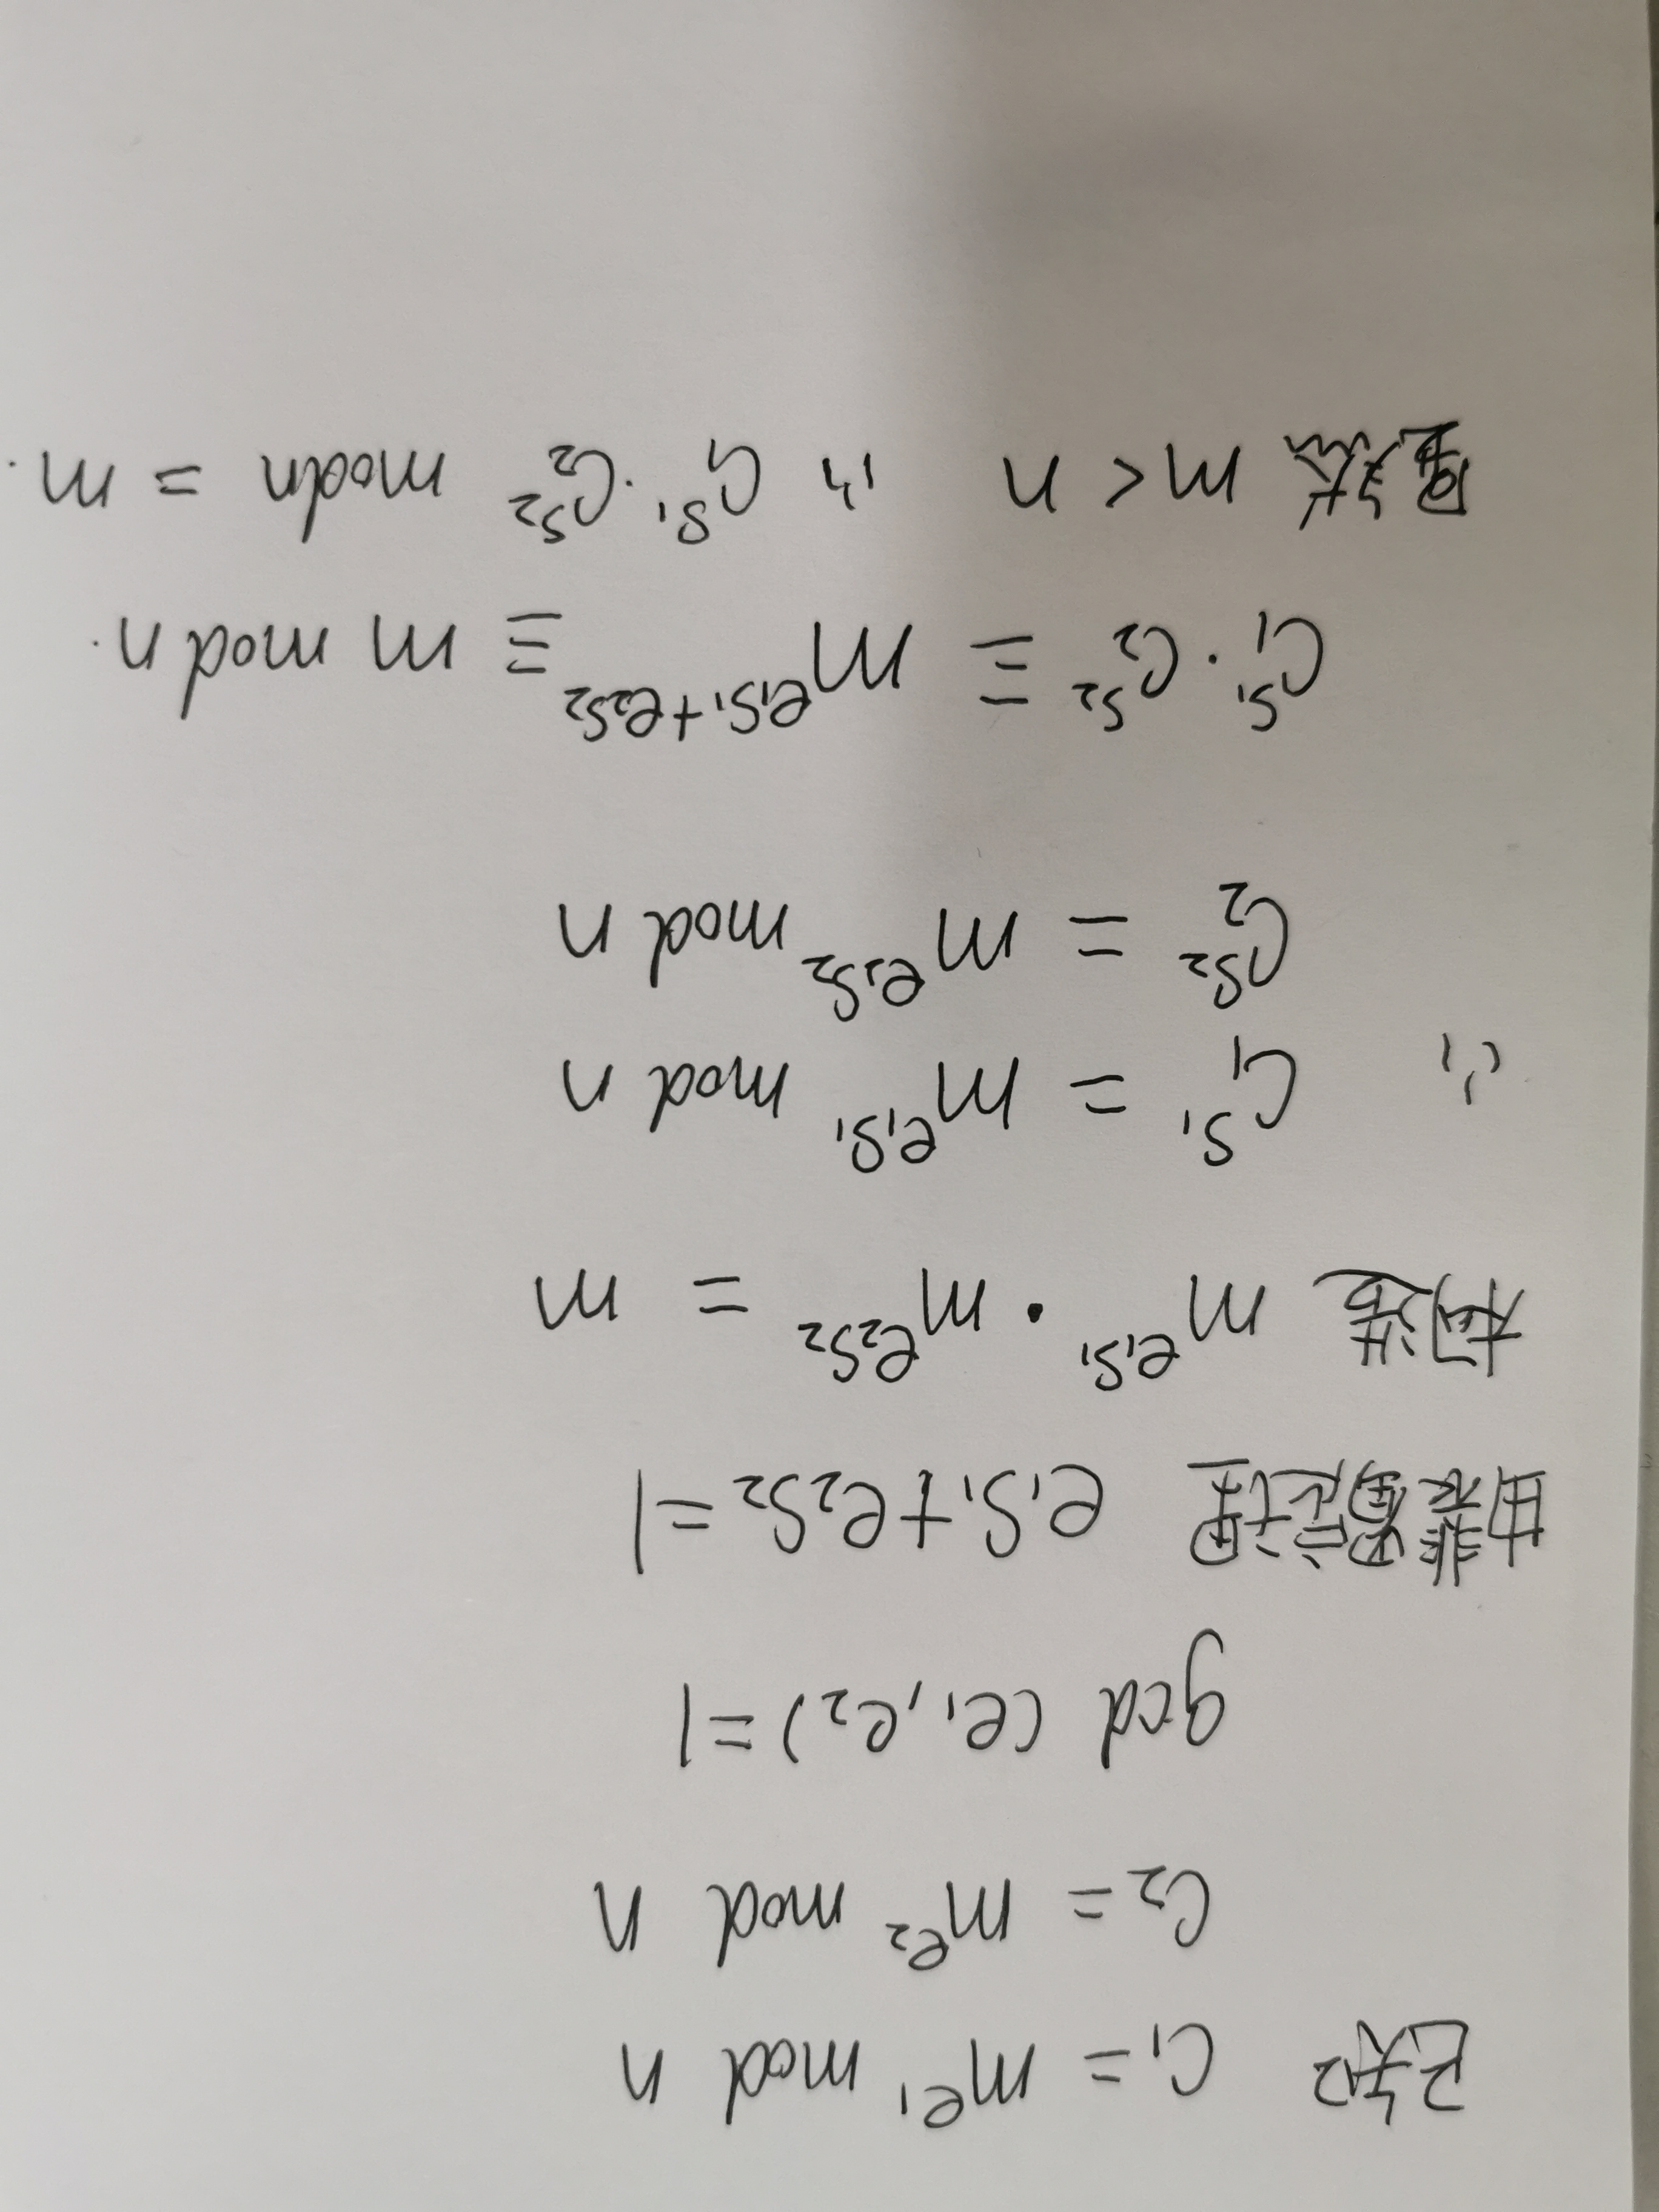 已知 c₁ = m^e₁ mod n
c₂ = m^e₂ mod n
gcd (e₁,e₂)=1
由裴蜀定理 e₁s₁+e₂s₂=1
构造 m^e₁s₁ · m^e₂s₂ = m
∴ c₁^s₁ = m^e₁s₁ mod n
c₂^s₂ = m^e₂s₂ mod n
c₁^s₁ · c₂^s₂ ≡ m^e₁s₁+e₂s₂ ≡ m mod n.
显然 m < n ∴ c₁^s₁ · c₂^s₂ mod n = m.